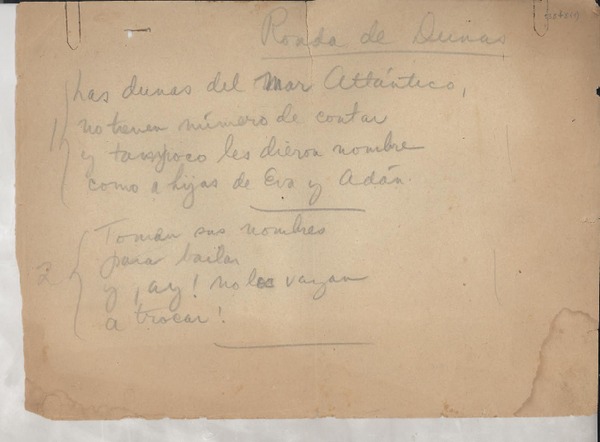 Ronda de Dunas
Las dunas del Mar Atlántico,
1 no tienen número de contar
y tampoco les dieron nombre
como a hijas de Eva y Adán.
Toman sus nombres
para bailar
2 y, ¡ay! no los vayan
a trocar!